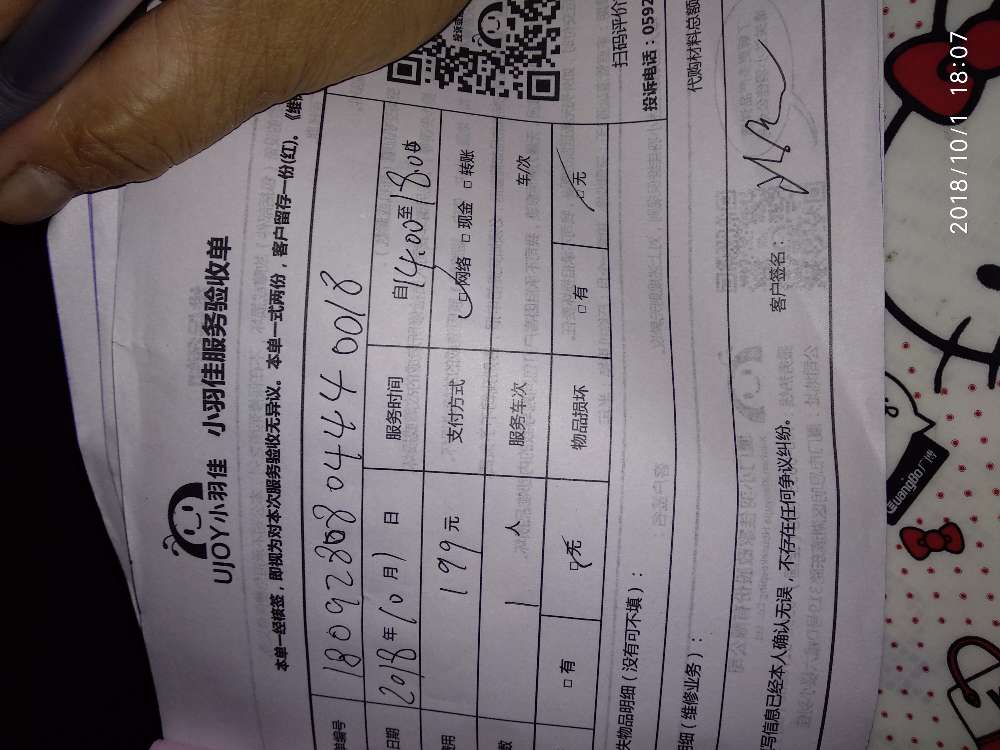 UJOY小羽佳 小羽佳服务验收单
本单一经核签，即视为对本次服务验收无异议。本单一式两份，客户留存一份(红)。
单编号 1809280804440018
日期 2018年10月1日 服务时间 自14.00至18.00
用 199元 支付方式 □网络 □现金 □转账
数 1人 服务车次 车/次
□有 □无 物品损坏 □有 □无
失物品明细（没有可不填）：
明细（维修业务）：
写信息已经本人确认无误，不存在任何争议纠纷。 客户签名：
扫码评价
投诉电话：0592
代购材料总额
GuangBo广博
2018/10/1 18:07